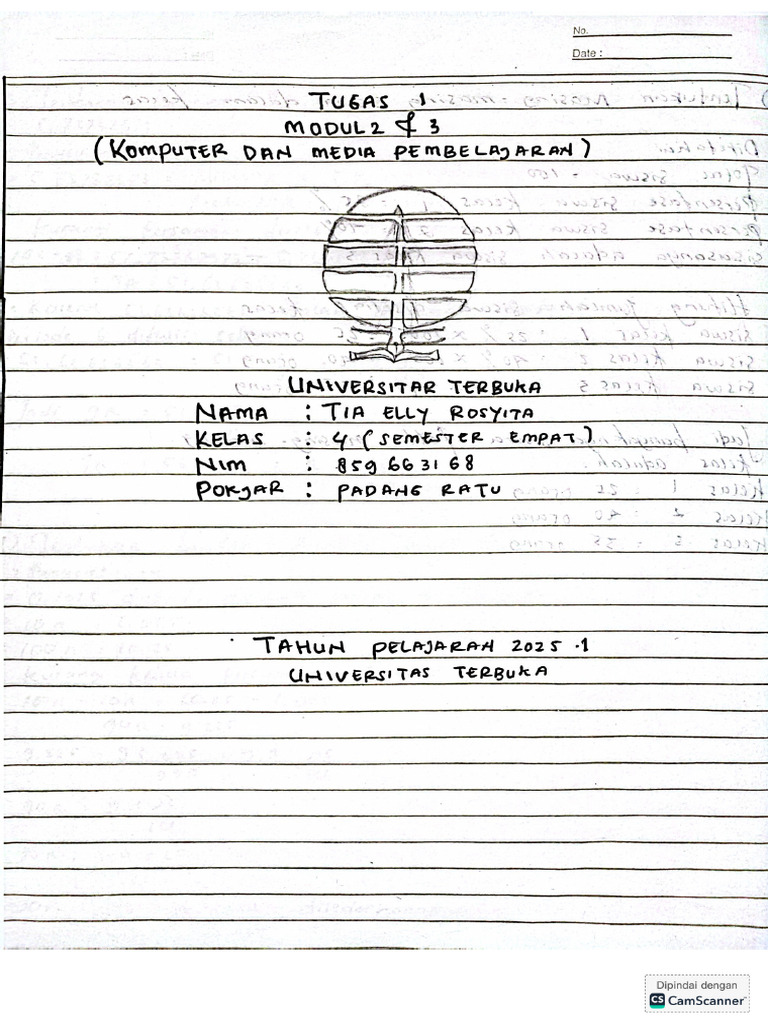 No.
Date :
TUGAS 1
MODUL 2 & 3
(KOMPUTER DAN MEDIA PEMBELAJARAN)
UNIVERSITAR TERBUKA
NAMA : TIA ELLY ROSYITA
KELAS : 4 (SEMESTER EMPAT)
NIM : 859663168
POKJAR : PADANG RATU
TAHUN PELAJARAN 2025.1
UNIVERSITAS TERBUKA
Dipindai dengan
CS CamScanner